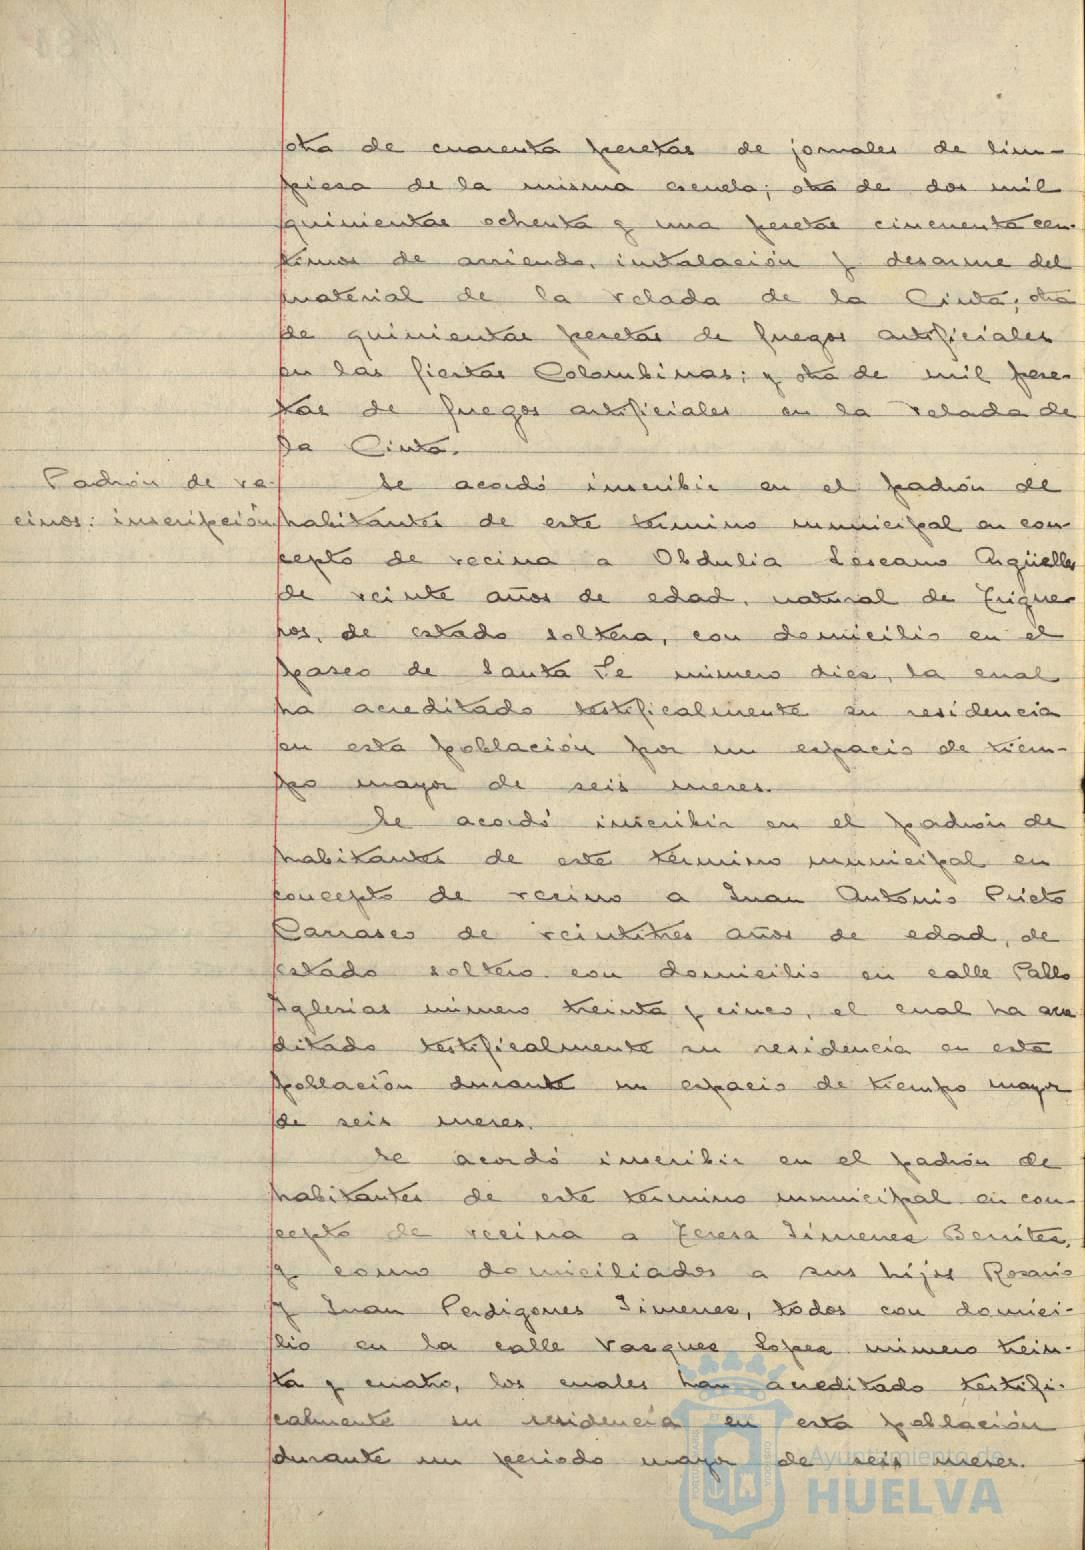 otra de cuarenta pesetas de jornales de lim-
pieza de la misma escuela; otra de dos mil
quinientas ochenta y una pesetas cincuenta cen-
timos de arriendo, instalación y desarme del
material de la velada de la Cinta; otra
de quinientas pesetas de fuegos artificiales
en las fiestas Colombinas; y otra de mil pese-
tas de fuegos artificiales en la velada de
la Cinta.
Padrón de ve-
cinos: inscripción
Se acordó inscribir en el padrón de
habitantes de este termino municipal en con-
cepto de vecina a Obdulia Lescano Argüelles
de veinte años de edad, natural de Trigue-
ros, de estado soltera, con domicilio en el
paseo de Santa Fe numero diez, la cual
ha acreditado testificalmente su residencia
en esta población por un espacio de tiem-
po mayor de seis meses.
Se acordó inscribir en el padrón de
habitantes de este termino municipal en
concepto de vecino a Juan Antonio Prieto
Carrasco de veintitres años de edad, de
estado soltero con domicilio en calle Pablo
Iglesias numero treinta y cinco, el cual ha acre
ditado testificalmente su residencia en esta
población durante un espacio de tiempo mayor
de seis meses.
Se acordó inscribir en el padrón de
habitantes de este termino municipal en con-
cepto de vecina a Teresa Jimenez Benitez,
y como domiciliados a sus hijos Rosario
y Juan Perdigones Jimenez, todos con domici-
lio en la calle Vasquez Lopez numero trein-
ta y cuatro, los cuales han acreditado testifi-
calmente su residencia en esta población
durante un periodo mayor de seis meses.
Ayuntamiento de
HUELVA